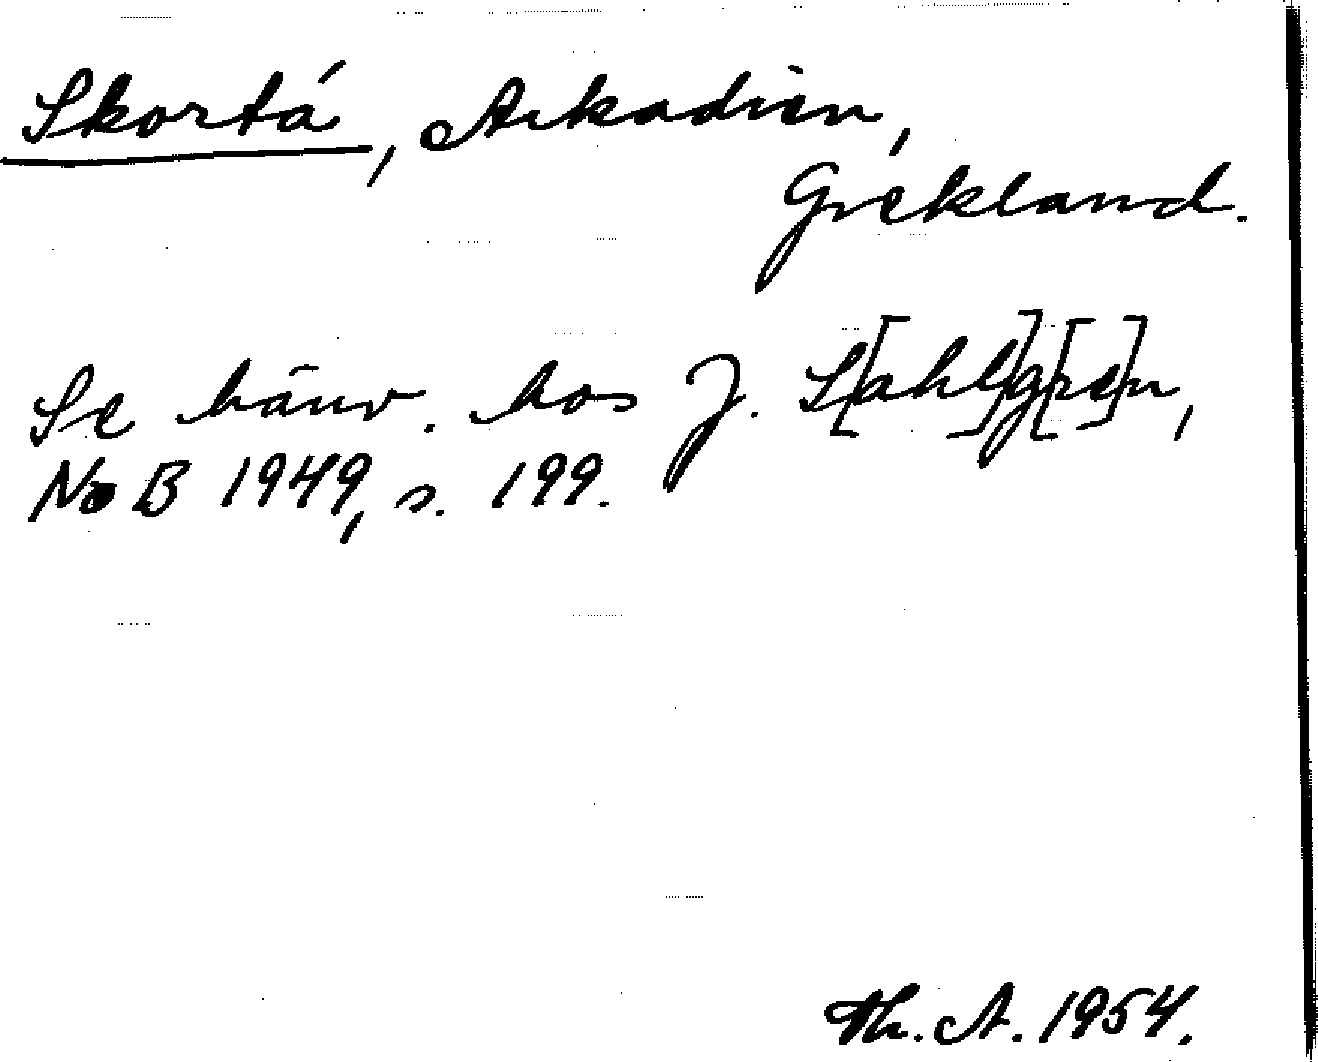 Skortá, Arkadien,
Grekland.
Se hänv. hos J. S[ahl]g[re]n,
NoB 1949, s. 199.
Th. A. 1954.